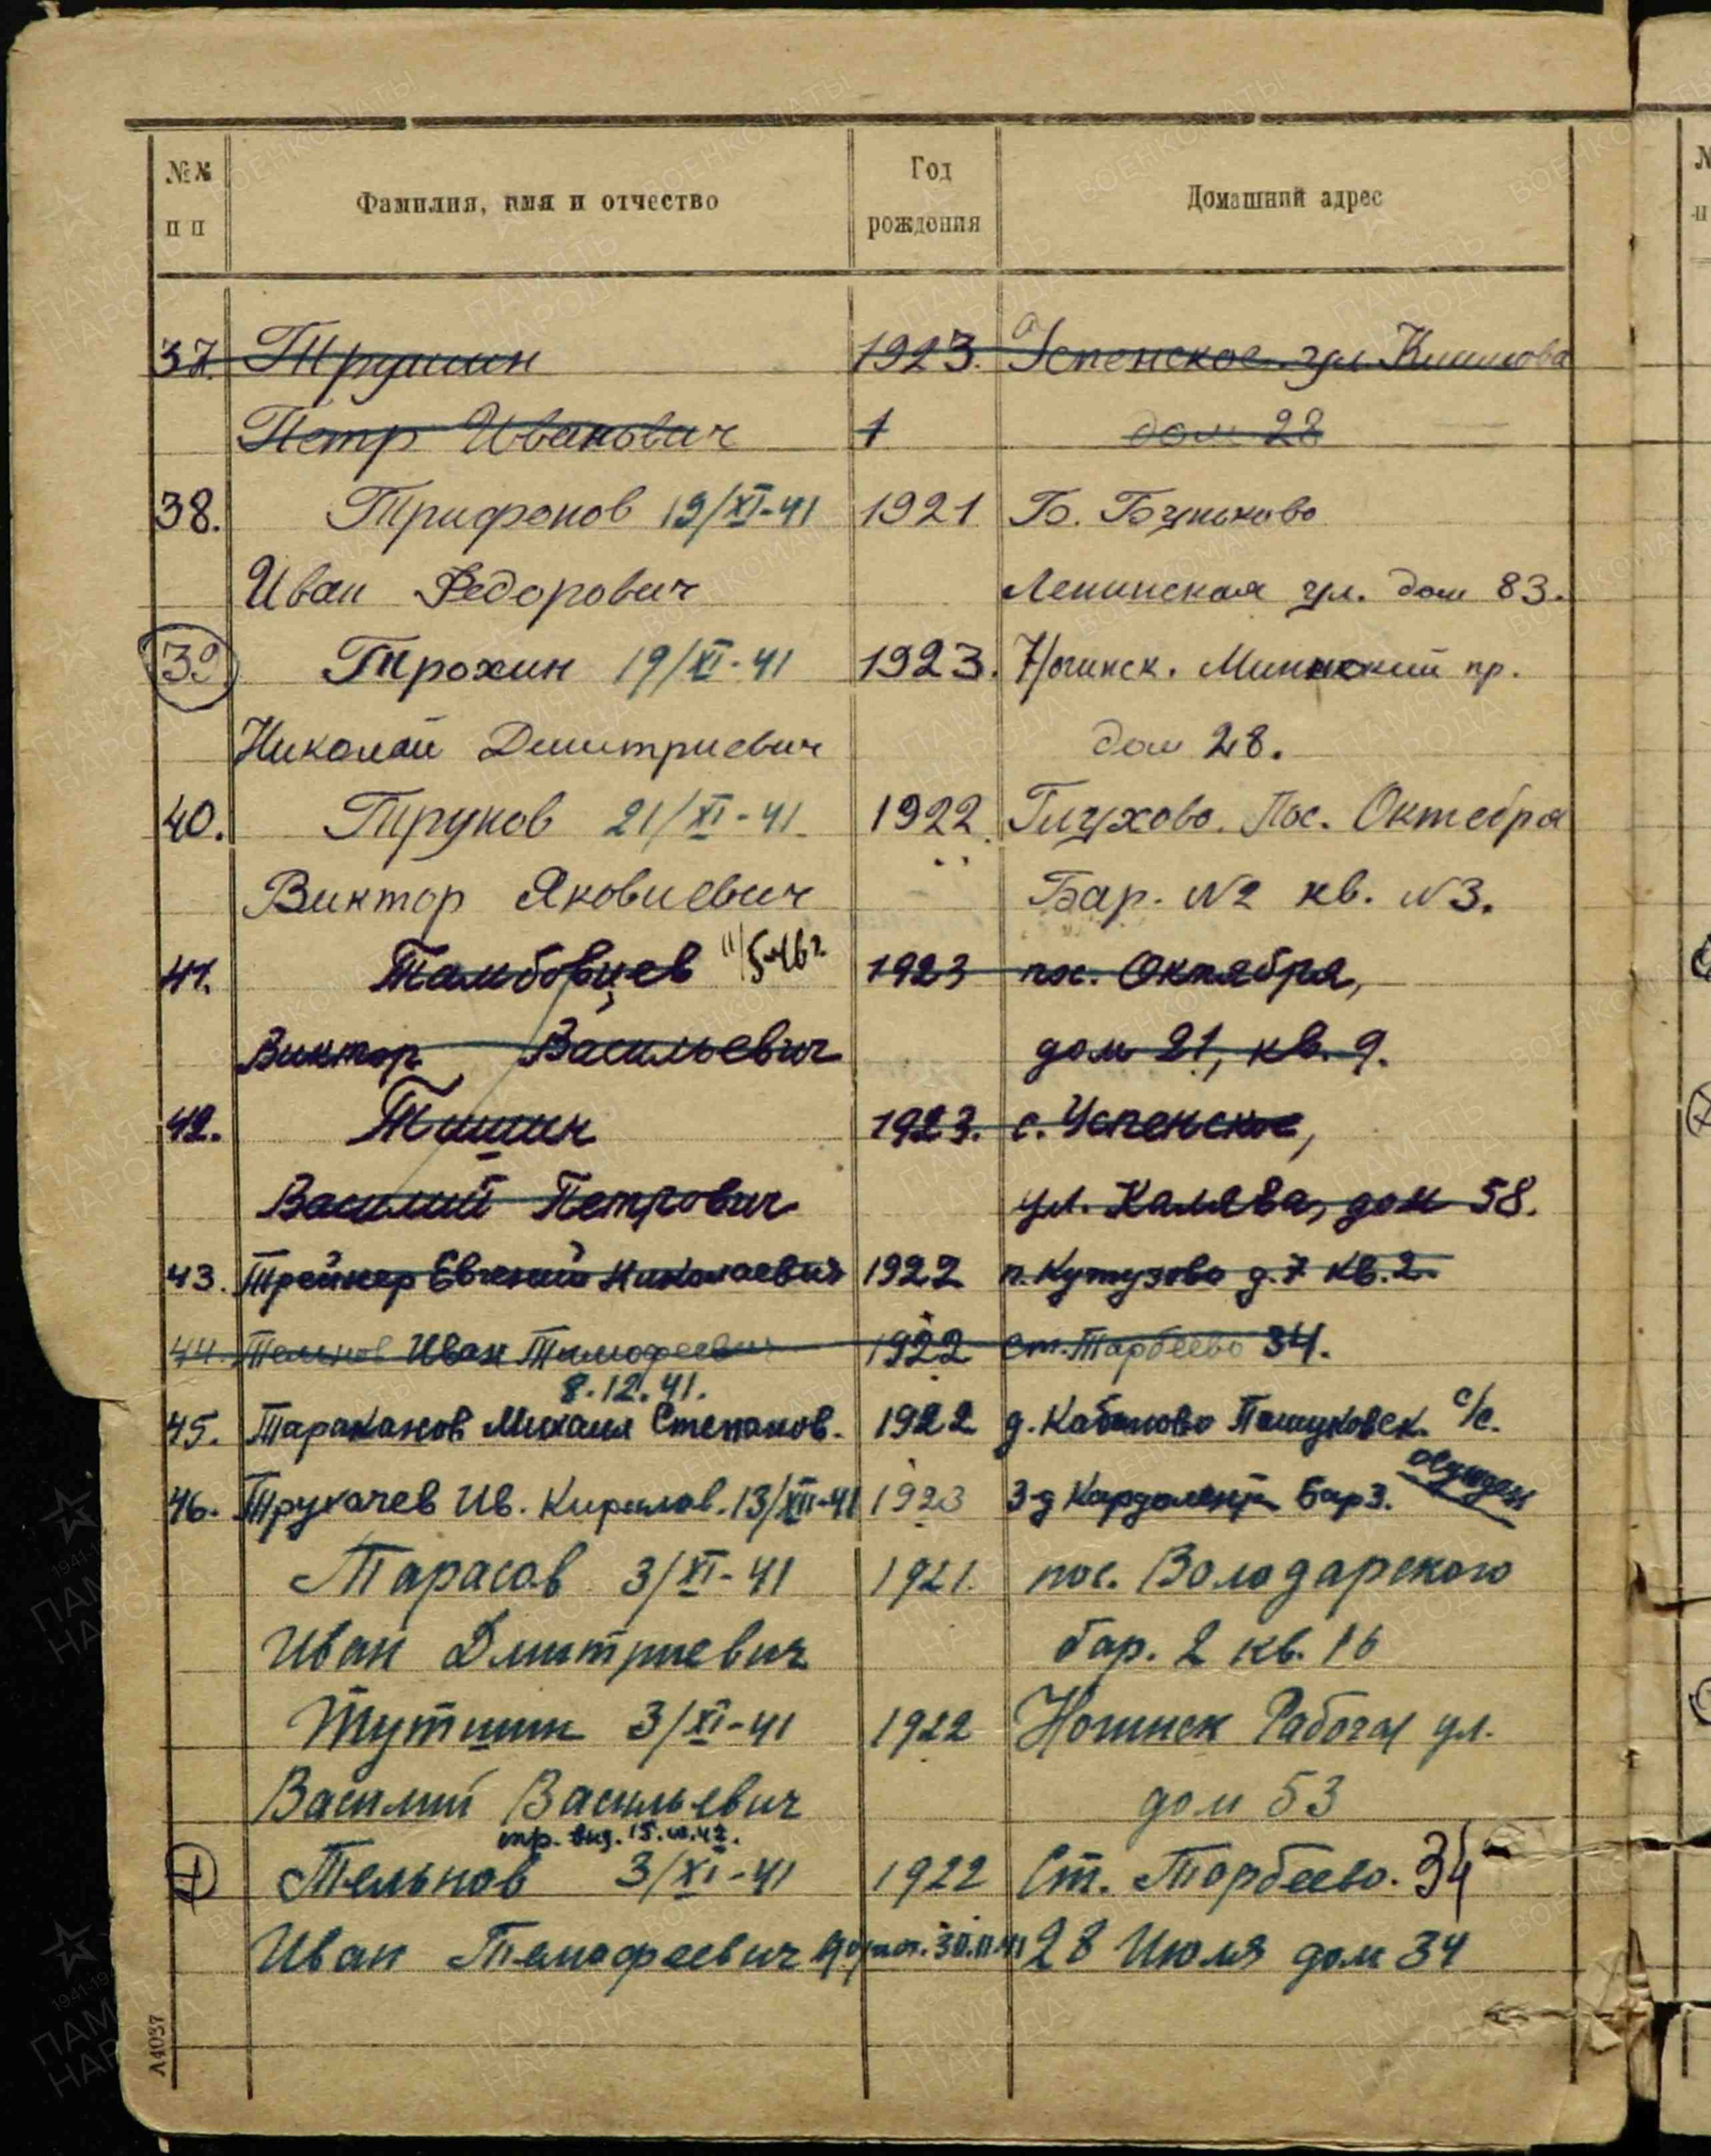 №№ п п
Фамилия, имя и отчество
Год рождения
Домашний адрес
37. Трушин 1923. Успенское ул.
Петр Иванович 1 дом 28
38. Трифонов 19/XI-41 1921 Б. Буньково
Иван Федорович Ленинская ул. дом 83.
39 Трохин 19/XI-41 1923. Ногинск. пр.
Николай Дмитриевич дом 28.
40. Трунов 21/XI-41 1922 Глухово. Пос. Октебря
Виктор Яковлевич Бар. №2 кв. №3.
41. Тамбовцев 1923 пос. Октября,
Виктор Васильевич дом 21, кв. 9.
42. Тишин 1923. с. Успенское,
Василий Петрович ул. Каляева, дом 58.
43. Трейнер Евгений Николаевич 1922 п. Кутузово д. 7 кв. 2.
44. Тельнов Иван Тимофеевич 1922 ст. Торбеево 34.
8.12.41.
45. Тараканов Михаил Степанов. 1922 д. Кабаново Пашуковск. с/с.
46. Трухачев Ив. Кирилов. 13/XII-41 1923 З-д Бар 3. осужден
Тарасов 3/XI-41 1921. пос. Володарского
Иван Дмитриевич бар. 2 кв. 16
Тутшин 3/XI-41 1922 Ногинск Рабочая ул.
Василий Васильевич дом 53
Тельнов 3/XI-41 1922 Ст. Торбеево. 34
Иван Тимофеевич 28 Июля дом 34
А4037